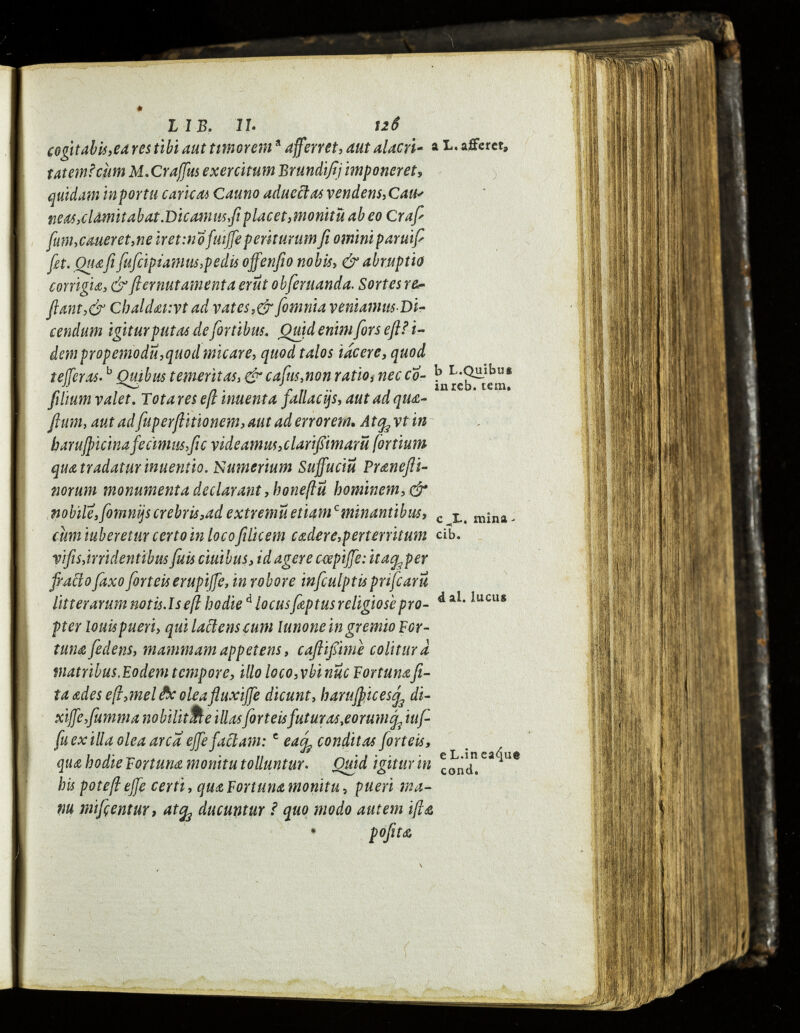 LIB. II. 126
cogitabis,ea res tibi aut timorem ᵃ afferret, aut alacri- a L. afferet,
tatem? cùm M.Craſſus exercitum Brundiſij imponeret,
quidam in portu caricas Cauno aduectas vendens,Cau-
neas,clamitabat.Dicamus,ſi placet,monitũ ab eo Craſ-
ſum,caueret,ne iret:nõ fuiſſe periturum ſi omini paruiſ-
ſet. Quæ ſi ſuſcipiamus,pedis offenſio nobis, & abruptio
corrigiæ, & ſternutamenta erũt obſeruanda. Sortes re-
ſtant,& Chaldæi:vt ad vates,& ſomnia veniamus.Di-
cendum igitur putas de ſortibus. Quid enim ſors eſt? i-
dem propemodũ,quod micare, quod talos iàcere, quod
teſſeras. ᵇ Quibus temeritas, & caſus,non ratio, nec cõ- b L.Quibus
ſilium valet. Tota res eſt inuenta fallacijs, aut ad quæ- in reb. tem.
ſtum, aut ad ſuperſtitionem, aut ad errorem. Atq; vt in
haruſpicina fecimus,ſic videamus,clariſsimarũ ſortium
quæ tradatur inuentio. Numerium Suffuciũ Præneſti-
norum monumenta declarant, honeſtũ hominem, &
nobilẽ,ſomnijs crebris,ad extremũ etiam ᶜminantibus, c L. mina-
cùm iuberetur certo in loco ſilicem cædere,perterritum cib.
viſis,irridentibus ſuis ciuibus, id agere cœpiſſe: itaq; per
fracto ſaxo ſorteis erupiſſe, in robore inſculptis priſcarũ
litterarum notis.Is eſt hodie ᵈ locus ſæptus religiosè pro- d al. lucus
pter Iouis pueri, qui lactens cum Iunone in gremio For-
tunæ ſedens, mammam appetens, caſtiſsimè colitur à
matribus.Eodem tempore, illo loco,vbi nũc Fortunæ ſi-
ta ædes eſt,mel ex olea fluxiſſe dicunt, haruſpicesq; di-
xiſſe,ſumma nobilitate illas ſorteis futuras,eorumq; iuſ-
ſu ex illa olea arcã eſſe factam: ᵉ eaq; conditas ſorteis,
quæ hodie Fortunæ monitu tolluntur. Quid igitur in e L.in eaque
his poteſt eſſe certi, quæ Fortunæ monitu, pueri ma- cond.
nu miſcentur, atq; ducuntur ? quo modo autem iſtæ
poſitæ